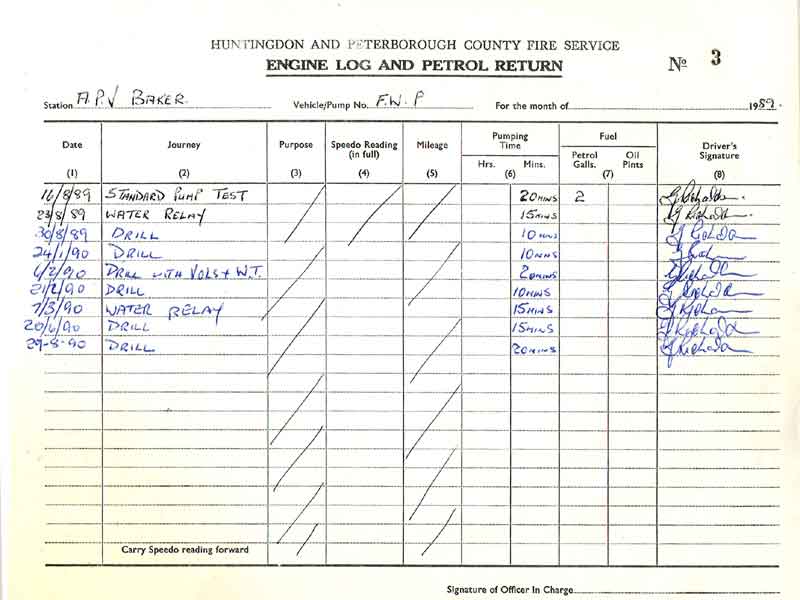 HUNTINGDON AND PETERBOROUGH COUNTY FIRE SERVICE
ENGINE LOG AND PETROL RETURN
No 3
Station A.P.V BAKER. Vehicle/Pump No. F.W.P For the month of 1989.
Date Journey Purpose Speedo Reading (in full) Mileage Pumping Time Hrs. Mins. Fuel Petrol Galls. Oil Pints Driver's Signature
(1) (2) (3) (4) (5) (6) (7) (8)
16/8/89 STANDARD PUMP TEST 20MINS 2
23/8/89 WATER RELAY 15MINS
30/8/89 DRILL 10MINS
24/1/90 DRILL 10MINS
6/2/90 DRILL WITH VOLS + W.T. 20MINS
21/2/90 DRILL 10MINS
7/3/90 WATER RELAY 15MINS
20/6/90 DRILL 15MINS
29-8-90 DRILL 20MINS
Carry Speedo reading forward
Signature of Officer In Charge